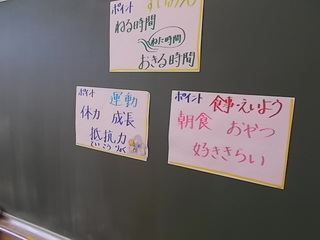 ポイント すいみん
ねる時間
ねた時間
おきる時間
ポイント 運動
体力 成長
抵抗力
ていこうりょく
ポイント 食事・えいよう
朝食 おやつ
好ききらい